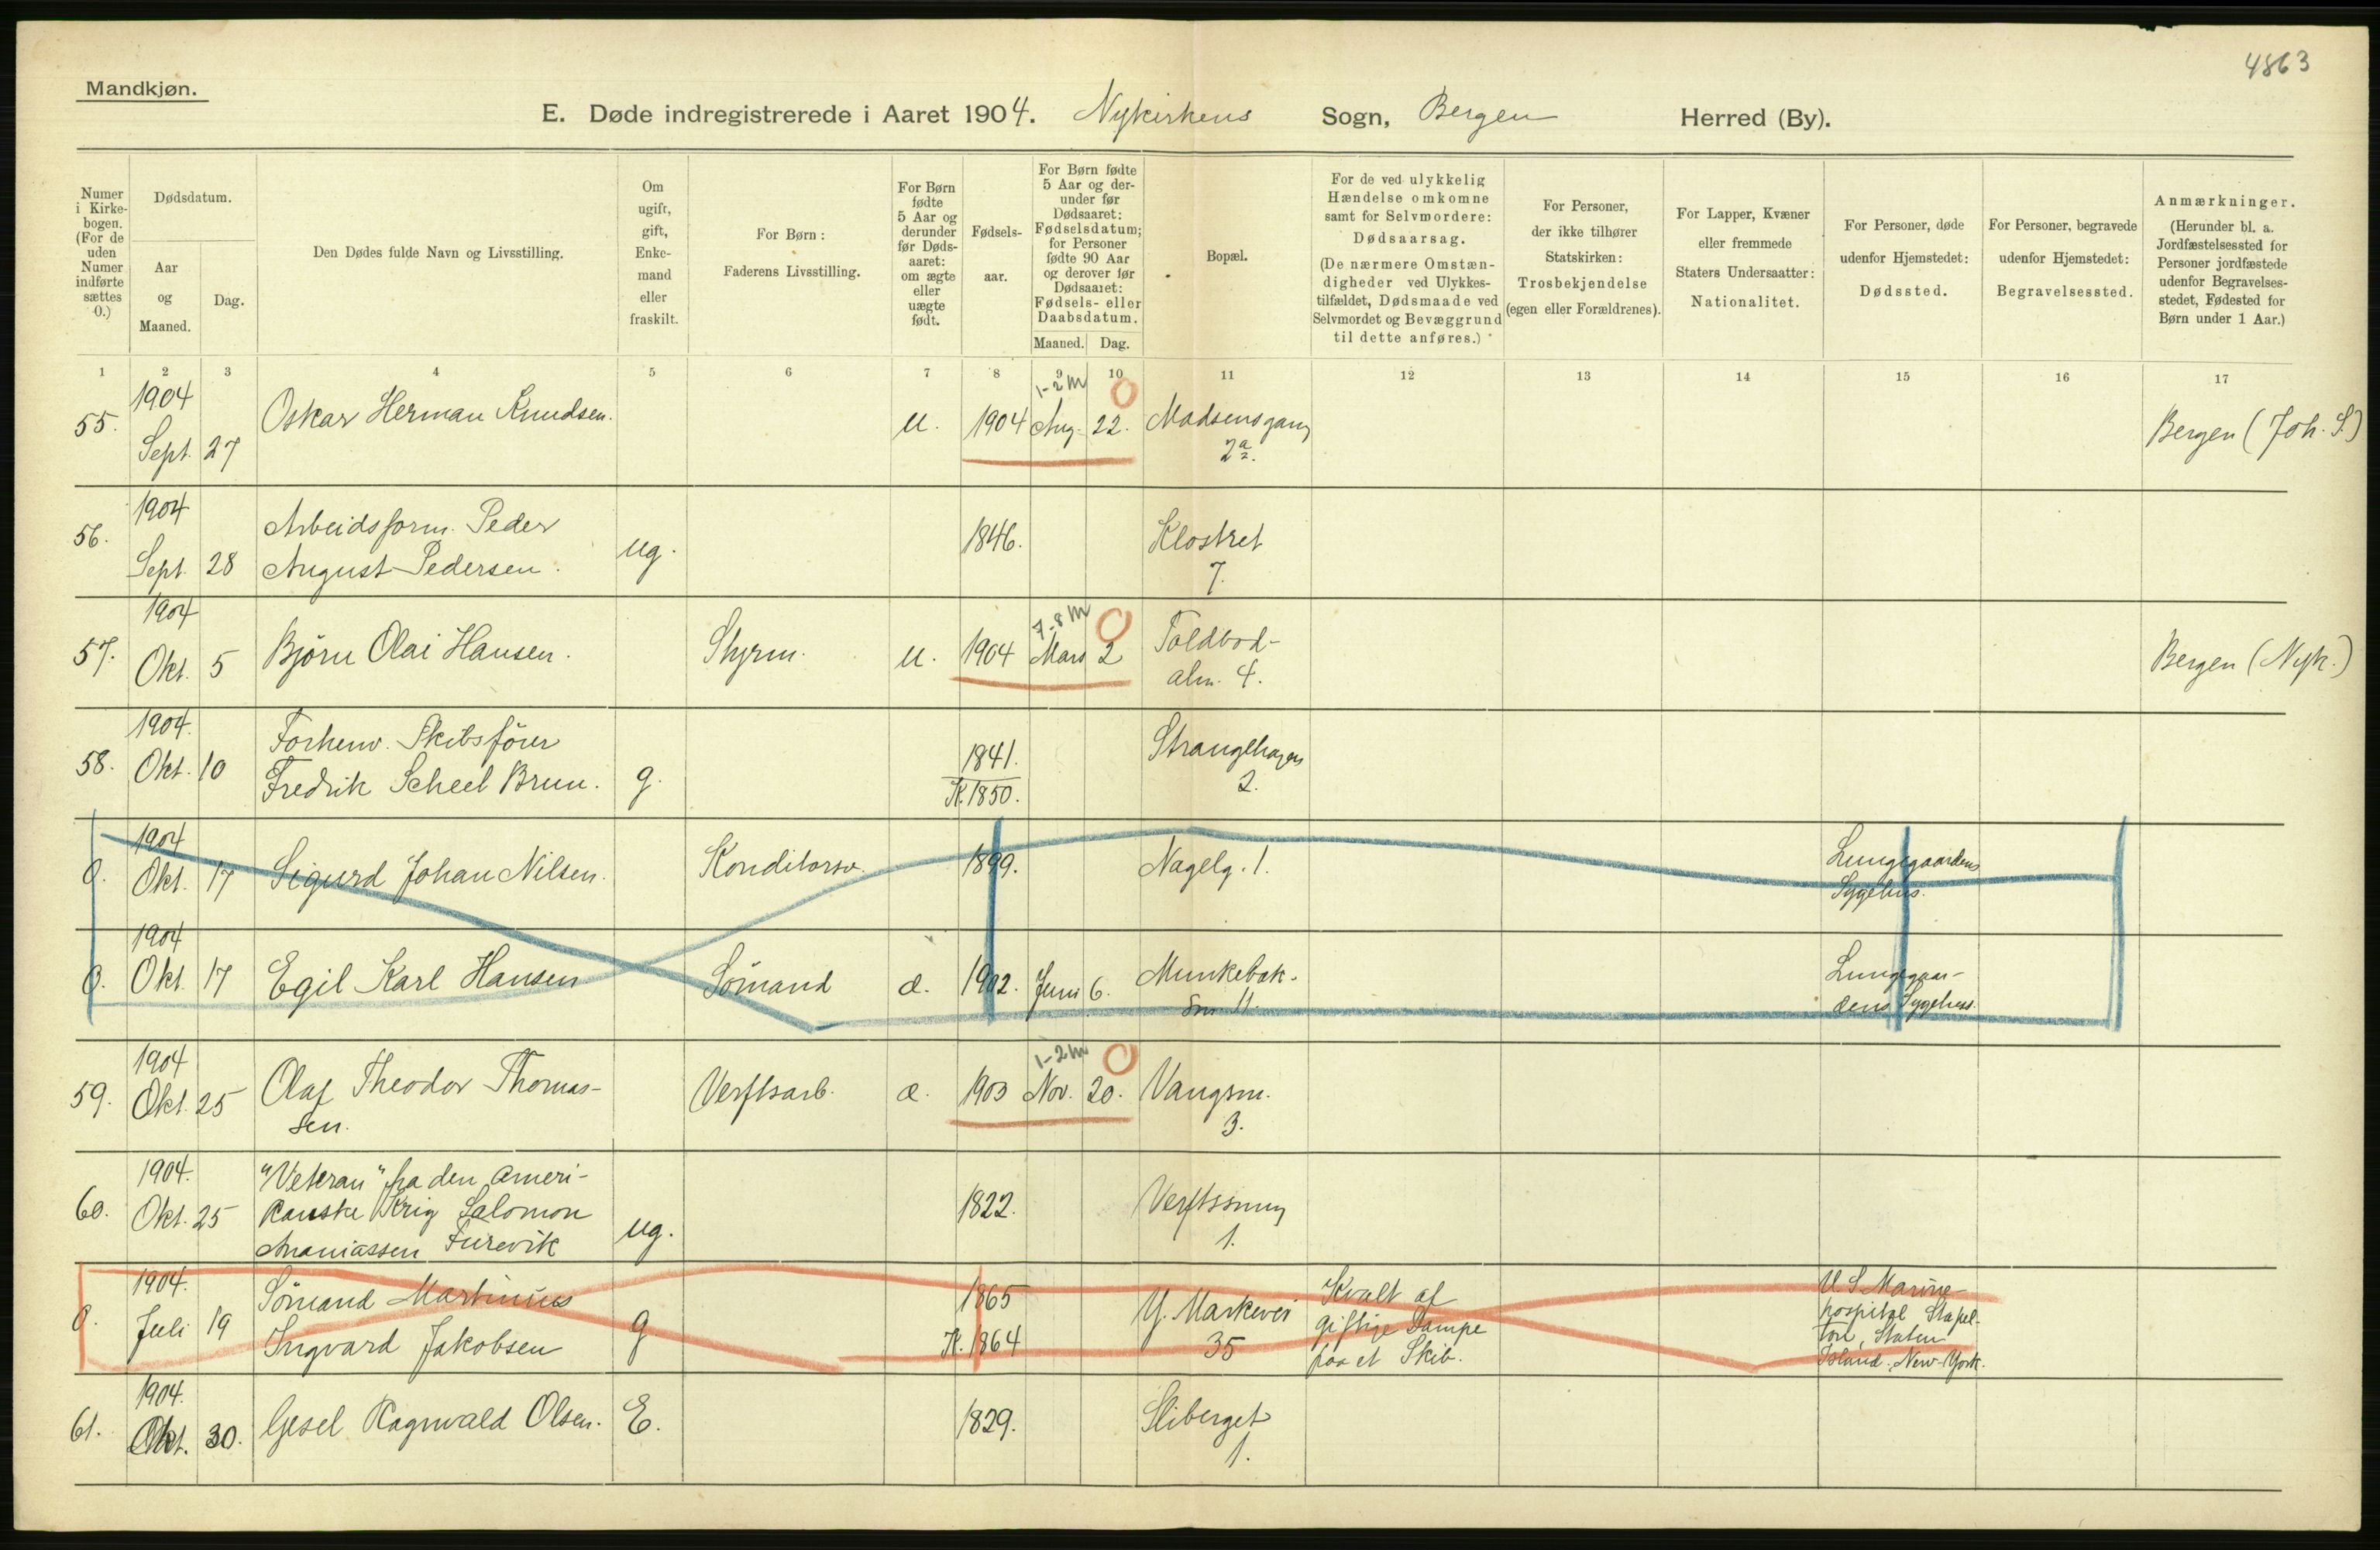 4863
Mandkjøn.
E. Døde indregistrerede i Aaret 1904. Nykirkens Sogn, Bergen Herred (By).
Numer i Kirke-bogen. (For de uden Numer indførte sættes 0.)
Dødsdatum.
Aar og Maaned.
Dag.
Den Dødes fulde Navn og Livsstilling.
Om ugift, gift, Enke-mand eller fraskilt.
For Børn: Faderens Livsstilling.
For Børn fødte 5 Aar og derunder før Døds-aaret: om ægte eller uægte født.
Fødsels-aar.
For Børn fødte 5 Aar og der-under før Dødsaaret: Fødselsdatum; for Personer fødte 90 Aar og derover før Dødsaaret: Fødsels- eller Daabsdatum.
Maaned. Dag.
Bopæl.
For de ved ulykkelig Hændelse omkomne samt for Selvmordere: Dødsaarsag. (De nærmere Omstæn-digheder ved Ulykkes-tilfældet, Dødsmaade ved Selvmordet og Bevæggrund til dette anføres.)
For Personer, der ikke tilhører Statskirken: Trosbekjendelse (egen eller Forældrenes).
For Lapper, Kvæner eller fremmede Staters Undersaatter: Nationalitet.
For Personer, døde udenfor Hjemstedet: Dødssted.
For Personer, begravede udenfor Hjemstedet: Begravelsessted.
Anmærkninger. (Herunder bl. a. Jordfæstelsessted for Personer jordfæstede udenfor Begravelses-stedet, Fødested for Børn under 1 Aar.)
1 2 3 4 5 6 7 8 9 10 11 12 13 14 15 16 17
55. 1904 Sept. 27 Oskar Herman Knudsen. u. 1904 1-2 m Aug. 22. Madsensgang 2a. Bergen (Joh. S.)
56. 1904 Sept. 28 Arbeidsform. Peder August Pedersen. ug. 1846. Klostret 7.
57. 1904 Okt. 5 Bjørn Olai Hansen. Styrm. u. 1904 7-8 m Mars 2 Toldbod-alm. 4. Bergen (Nyk.)
58. 1904. Okt. 10 Forhenv. Skibsfører Fredrik Scheel Brun. g. 1841. K. 1850. Strangehagen 2.
0. 1904 Okt. 17 Sigurd Johan Nilsen. Konditorsv. 1899. Nagelg. 1. Lungegaardens Sygehus.
0. 1904 Okt. 17 Egil Karl Hansen Sömand æ. 1902. Juni 6. Munkebæk-sm. 11. Lungegaar-dens Sygehus.
59. 1904 Okt. 25 Olaf Theodor Thomas-sen. Verftsarb. æ. 1903 1-2 m Nov. 20. Vangsm. 3.
60. 1904. Okt. 25 "Veteran" fra den ameri-kanske Krig Salomon Ananiassen Furevik ug. 1822. Verftssmug 1.
0. 1904. Juli 19 Sömand Martinius Ingvard Jakobsen g 1865 K. 1864 Y. Markevei 35 Kvalt af giftige Dampe paa et Skib. U. S. Marine-hospital Stapel-ton, Staten Island. New-York.
61. 1904. Okt. 30. Gesel Ragnvald Olsen. E. 1829. Sliberget 1.